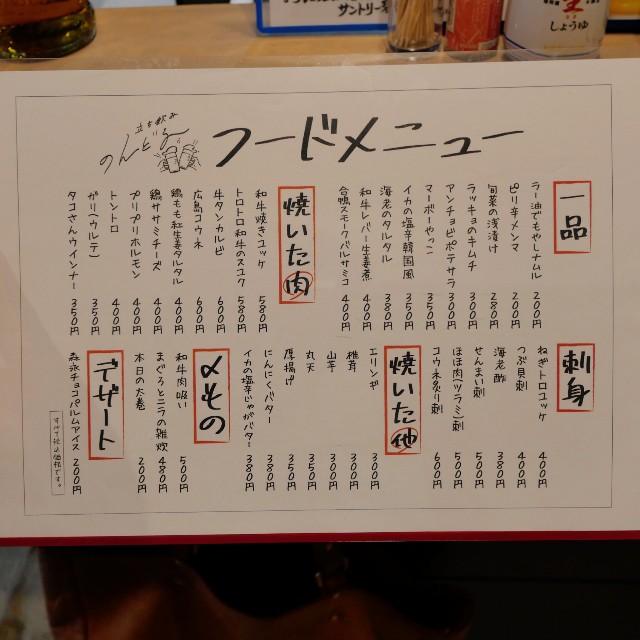 サントリー
しょうゆ
立ち飲み
のんどる
フードメニュー
一品
ラー油でもやしナムル 200円
ピリ辛メンマ 200円
旬菜の浅漬け 280円
ラッキョのキムチ 300円
アンチョビポテサラ 300円
マーボーやっこ 350円
イカの塩辛韓国風 350円
海老のタルタル 380円
和牛レバー生姜煮 400円
合鴨スモークバルサミコ 400円
焼いた肉
和牛焼きユッケ 580円
トロトロ和牛のスユク 580円
牛タンカルビ 600円
広島コウネ 600円
鶏もも紅生姜タルタル 400円
鶏ササミチーズ 400円
プリプリホルモン 400円
トントロ 400円
ガリ(ウルテ) 350円
タコさんウインナー 350円
刺身
ねぎトロユッケ 400円
つぶ貝刺 400円
海老酢 380円
せんまい刺 500円
ほほ肉(ツラミ)刺 500円
コウネ炙り刺 600円
焼いた他
エリンギ 300円
椎茸 300円
山芋 350円
丸天 350円
厚揚げ 350円
にんにくバター 380円
イカの塩辛じゃがバター 380円
〆もの
和牛肉吸い 500円
まぐろとニラの雑炊 480円
本日の大巻 200円
デザート
森永チョコパルムアイス 200円
すべて税込価格です。